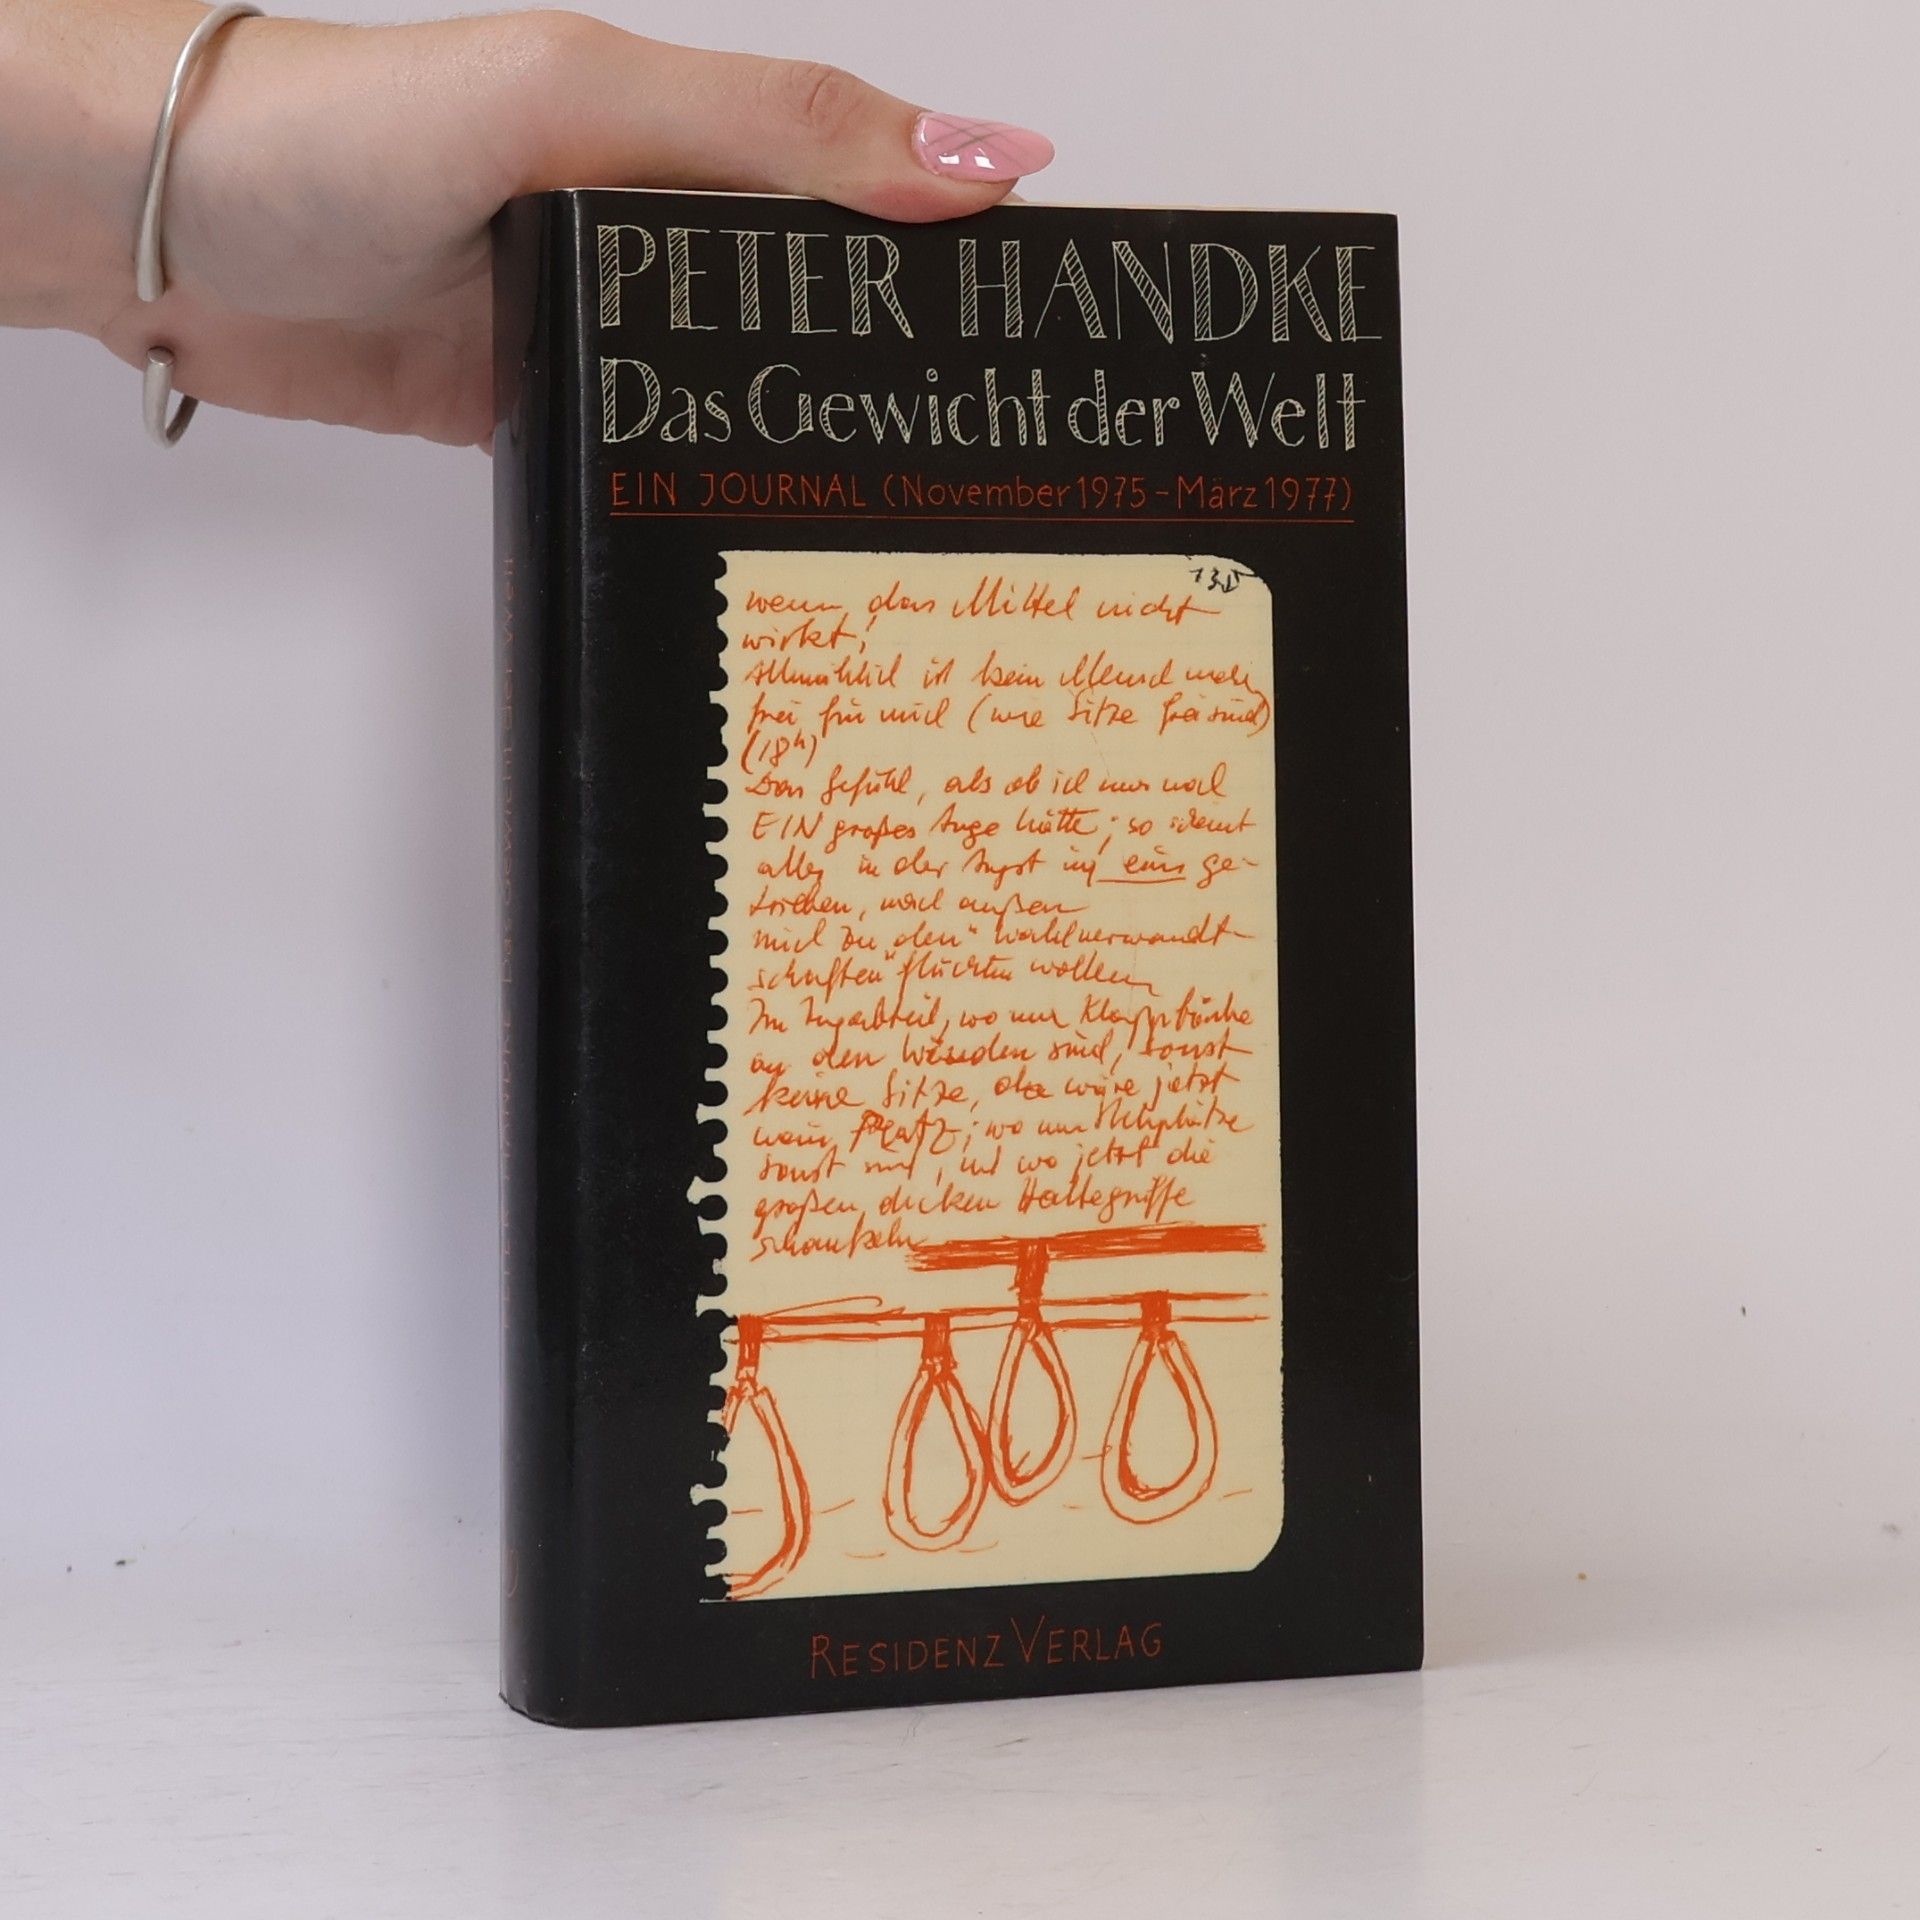 PETER HANDKE
Das Gewicht der Welt
EIN JOURNAL (November 1975 - März 1977)
wenn das Mittel nicht
wirkt;
Allmählich ist kein Mensch mehr
frei für mich (wie Sitze frei sind)
(18h)
Das Gefühl, als ob ich nur noch
EIN großes Auge hätte; so scheint
alles in der Angst in eins ge-
trieben, nach außen
mich zu den "Wahlverwandt-
schaften" flüchten wollen
Im Zugabteil, wo nur Klappbänke
an den Wänden sind, sonst
keine Sitze, da wäre jetzt
mein Platz; wo nur Stehplätze
sonst sind, und wo jetzt die
großen, dicken Haltegriffe
schaukeln
RESIDENZ VERLAG
PETER HANDKE Das Gewicht der Welt